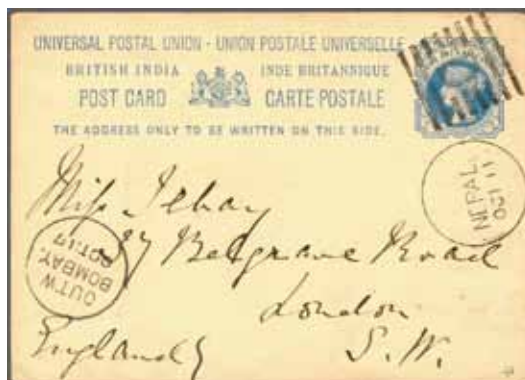 UNIVERSAL POSTAL UNION - UNION POSTALE UNIVERSELLE
BRITISH INDIA INDE BRITANNIQUE
POST CARD CARTE POSTALE
THE ADDRESS ONLY TO BE WRITTEN ON THIS SIDE.
NEPAL
OCT 11
Miss
OUTW
BOMBAY
OCT 17
Belgrave Road
London
England
S.W.